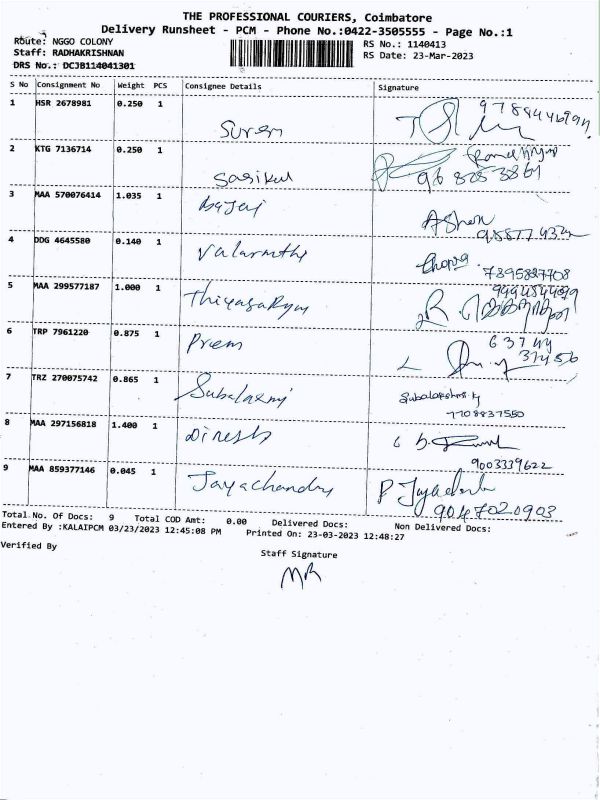 THE PROFESSIONAL COURIERS, Coimbatore
Delivery Runsheet - PCM - Phone No.:0422-3505555 - Page No.:1
Route: NGGO COLONY
Staff: RADHAKRISHNAN
DRS No.: DCJB114041301
RS No.: 1140413
RS Date: 23-Mar-2023
S No Consignment No Weight PCS Consignee Details Signature
1 HSR 2678981 0.250 1
Suren
2 KTG 7136714 0.250 1
Sasikul
3 MAA 570076414 1.035 1
4 DDG 4645580 0.140 1
Valarmthi
7395887708
5 MAA 299577187 1.000 1
6 TRP 7961220 0.875 1
Prem
63744
31456
7 TRZ 270075742 0.865 1
Subalaxmi
7708837550
8 MAA 297156818 1.400 1
Dinesh
9003339622
9 MAA 859377146 0.045 1
Jayachandra
9047020903
Total No. Of Docs: 9 Total COD Amt: 0.00 Delivered Docs: Non Delivered Docs:
Entered By :KALAIPCM 03/23/2023 12:45:08 PM Printed On: 23-03-2023 12:48:27
Verified By
Staff Signature